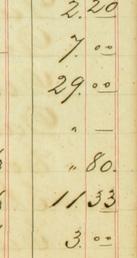 2.20
7.00
29.00
" —
" 80.
11.33
3.00